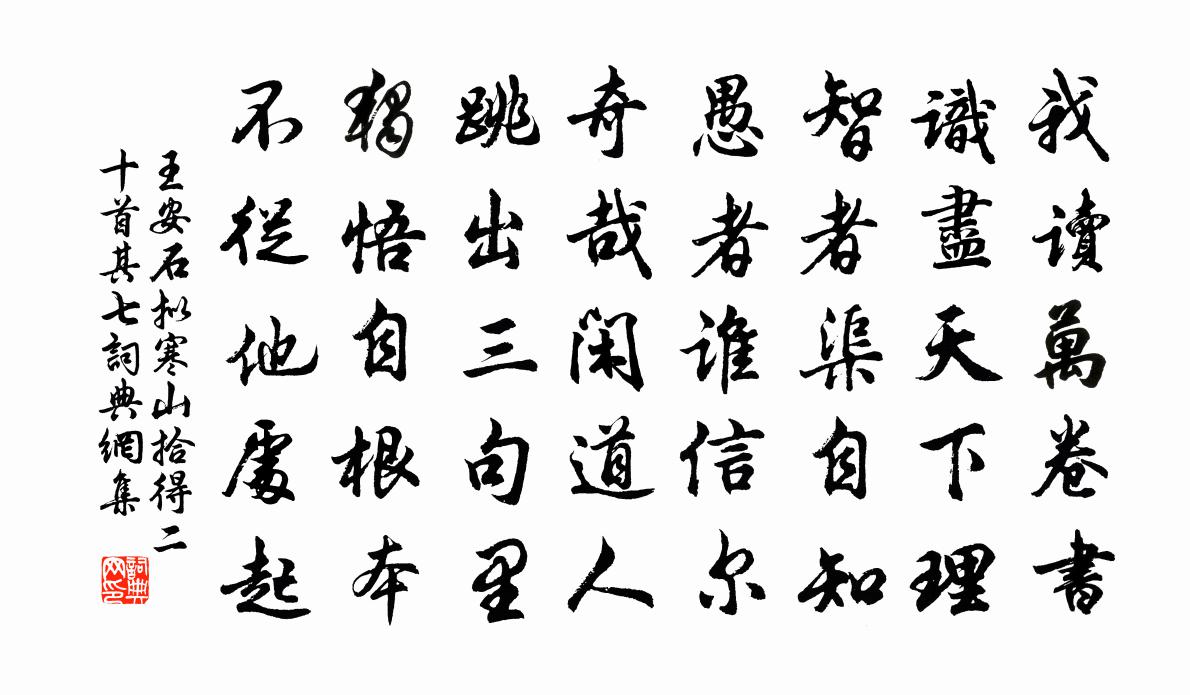 我讀萬卷書
識盡天下理
智者渠自知
愚者誰信尔
奇哉閑道人
跳出三句里
獨悟自根本
不從他處起
王安石拟寒山拾得二
十首其七詞典網集
詞典网印